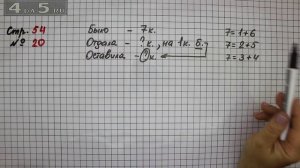 4DA5.RU
Стр. 54
№ 20
Было - 7к.
Отдала - ?к., на 1к. б.
Оставила - ?к.
7=1+6
7=2+5
7=3+4